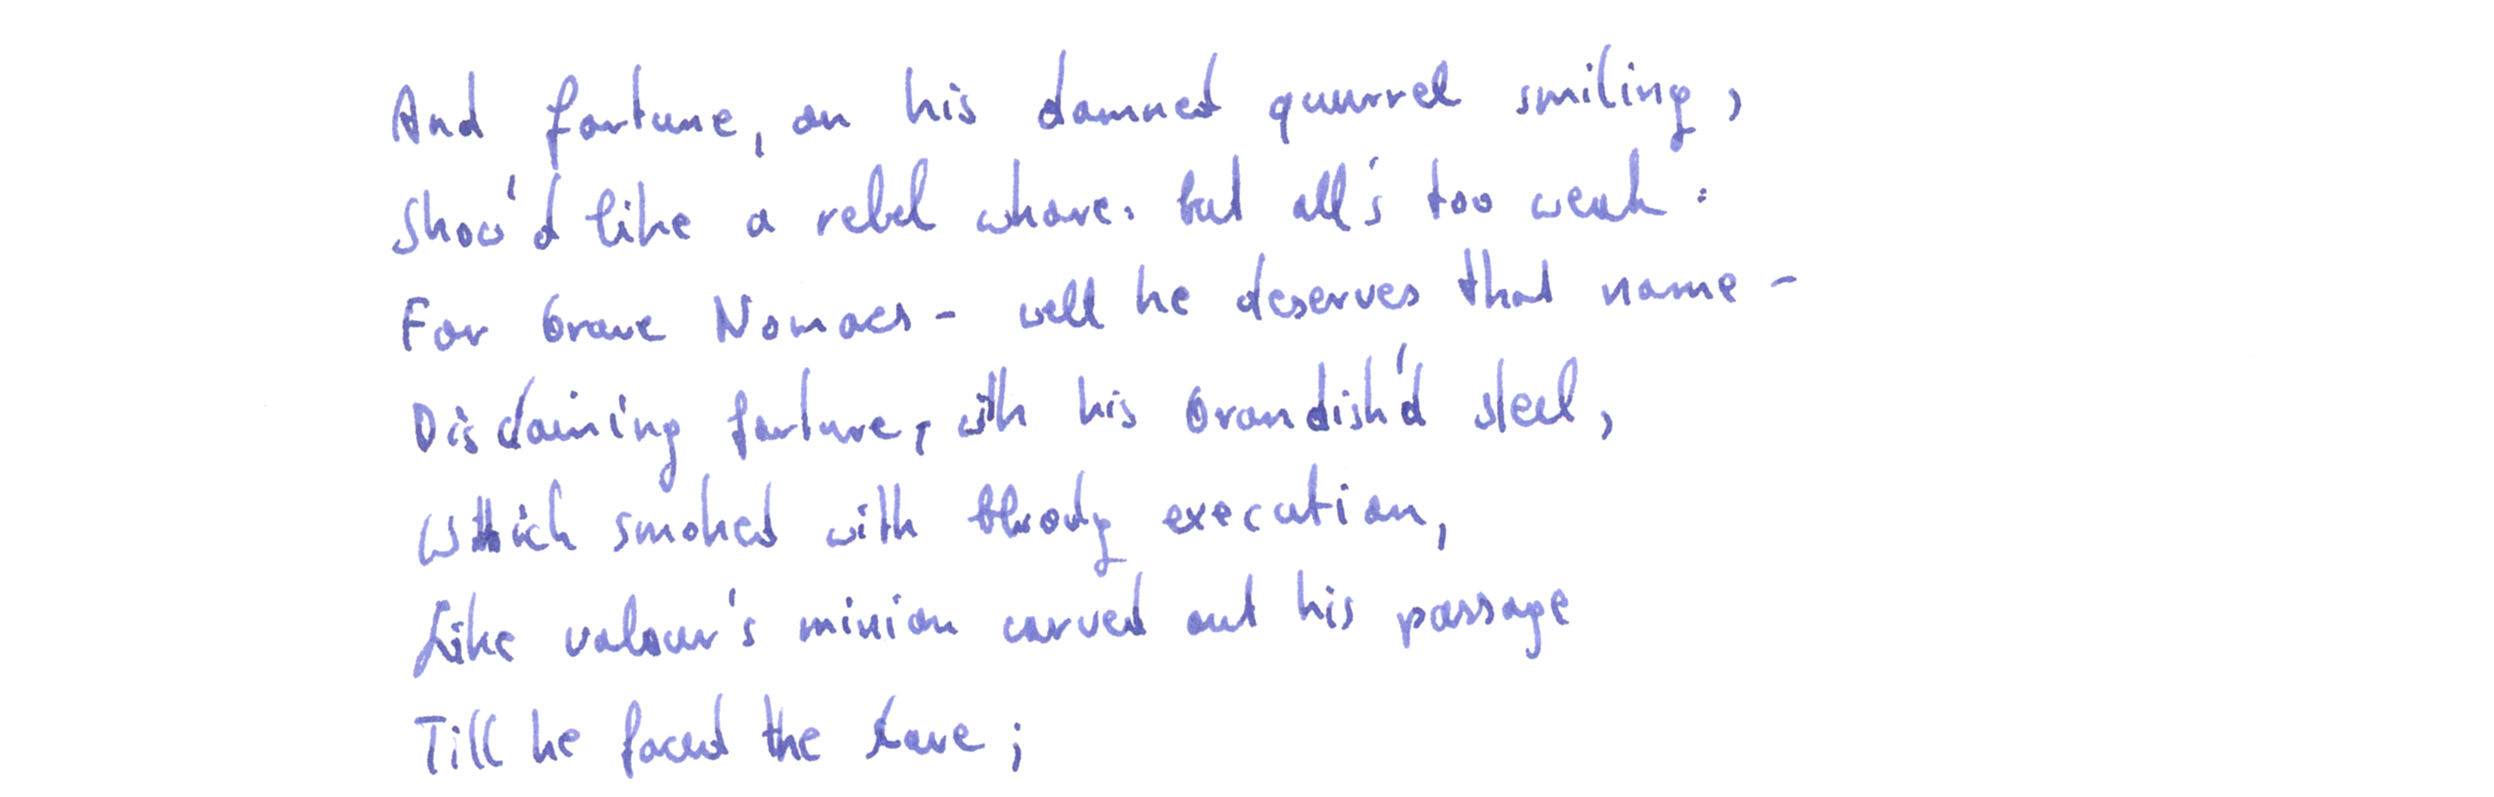 And fortune, on his damned quarrel smiling,
Show'd like a rebel whore: but all's too weak:
For brave Nomaes - well he deserves that name -
Disdaining fortune, with his brandish'd steel,
Which smoked with bloody execution,
Like valour's minion carved out his passage
Till he faced the slave;